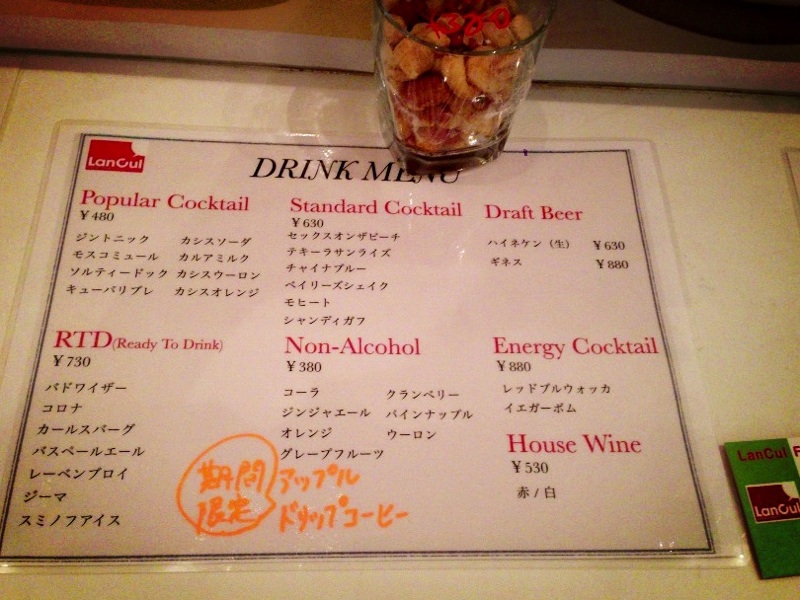 ¥320
LanCul
DRINK MENU
Popular Cocktail
¥480
ジントニック カシスソーダ
モスコミュール カルアミルク
ソルティードック カシスウーロン
キューバリブレ カシスオレンジ
Standard Cocktail
¥630
セックスオンザビーチ
テキーラサンライズ
チャイナブルー
ベイリーズシェイク
モヒート
シャンディガフ
Draft Beer
ハイネケン（生） ¥630
ギネス ¥880
RTD(Ready To Drink)
¥730
バドワイザー
コロナ
カールスバーグ
バスペールエール
レーベンブロイ
ジーマ
スミノフアイス
Non-Alcohol
¥380
コーラ クランベリー
ジンジャエール パインナップル
オレンジ ウーロン
グレープフルーツ
期間
限定
アップル
ドリップコーヒー
Energy Cocktail
¥880
レッドブルウォッカ
イエガーボム
House Wine
¥530
赤 / 白
LanCul
LanCul